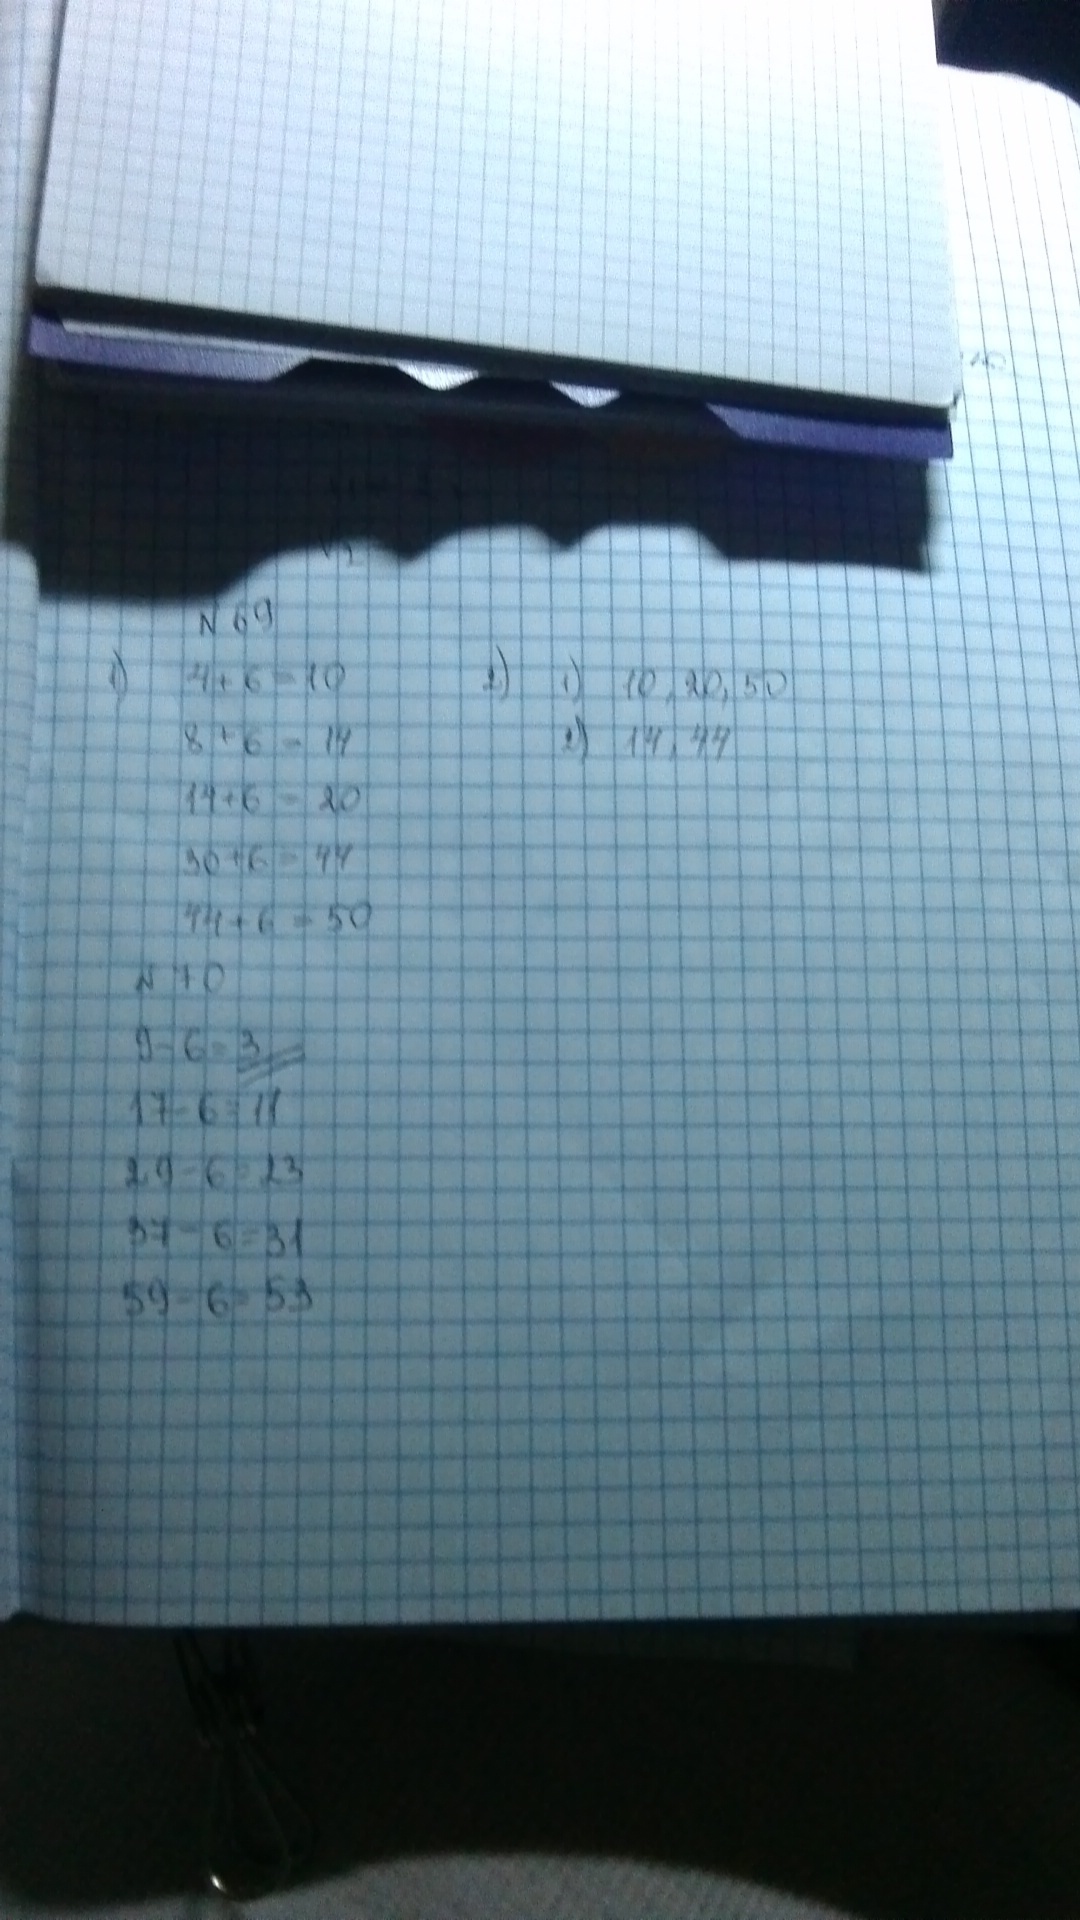 N 69
1) 4+6=10
8+6=14
14+6=20
30+6=44
44+6=50
2) 1) 10, 20, 50
2) 14, 44
N 70
9-6=3
17-6=11
29-6=23
37-6=31
59-6=53